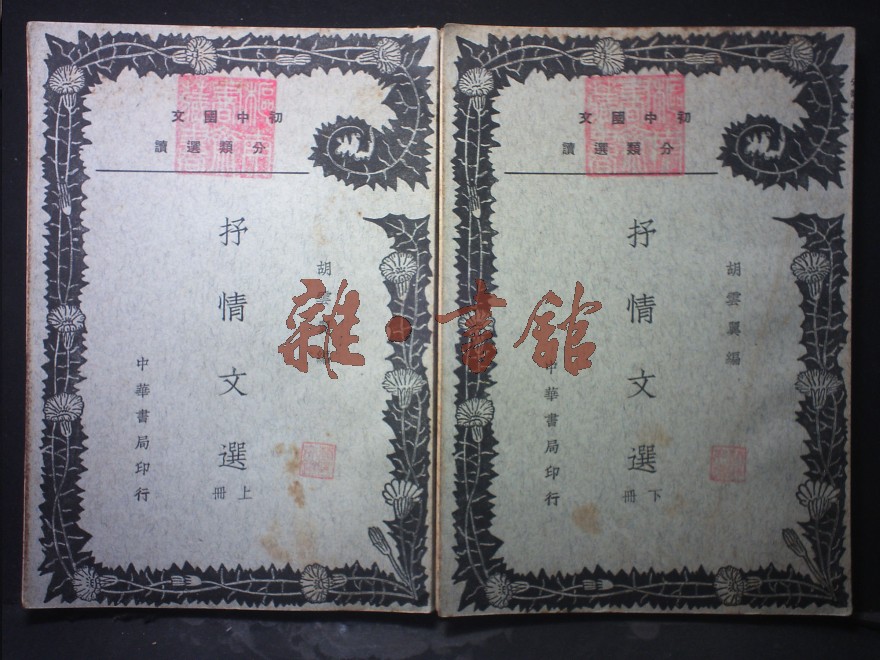 初中國文
分類選讀
胡雲
抒情文選
上冊
中華書局印行
初中國文
分類選讀
胡雲翼編
抒情文選
下冊
中華書局印行
雜·書館